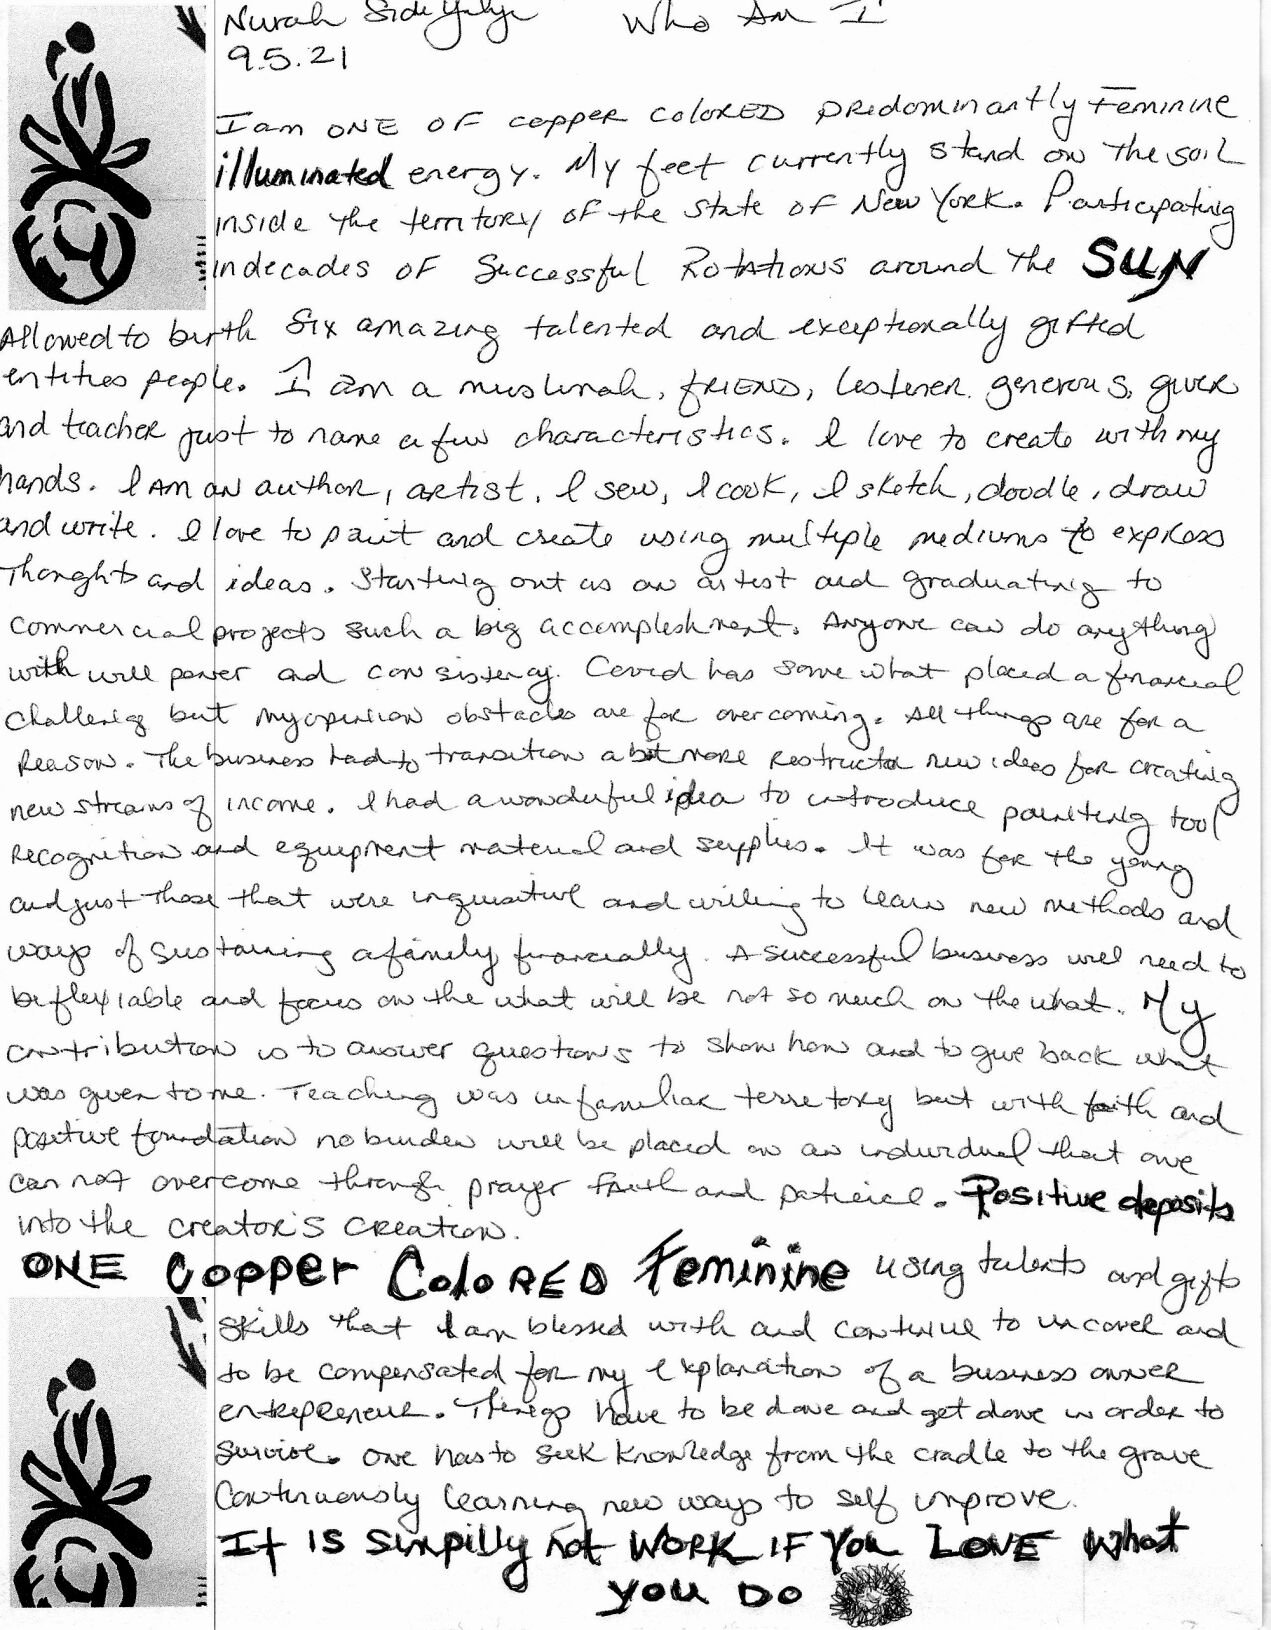 Nurah Who Am I
9.5.21
I am ONE OF copper colored predominantly Feminine
illuminated energy. My feet currently stand on the soil
inside the territory of the State of New York. Participating
in decades of Successful Rotations around the SUN
Allowed to birth Six amazing talented and exceptionally gifted
entities people. I am a muslimah, FRIEND, listener, generous, giver
and teacher just to name a few characteristics. I love to create with my
hands. I AM an author, artist, I sew, I cook, I sketch, doodle, draw
and write. I love to paint and create using multiple mediums to express
thoughts and ideas. Starting out as an artist and graduating to
commercial projects such a big accomplishment. Anyone can do anything
with will power and consistency. Covid has some what placed a financial
challenge but my opinion obstacles are for overcoming. All things are for a
Reason. The business had to transition a bit more restructor new ideas for creating
new streams of income. I had a wonderful idea to introduce painting tool
Recognition and equipment material and supplies. It was for the young
and just those that were inquisitive and willing to learn new methods and
ways of sustaining a family financially. A successful business will need to
be flexiable and focus on the what will be not so much on the what. My
contribution is to answer questions to show how and to give back what
was given to me. Teaching was unfamiliar territory but with faith and
positive foundation no burden will be placed on an individual that one
can not overcome through prayer faith and patience. Positive deposits
into the creator's creation.
ONE Copper Colored Feminine using talents and gifts
skills that I am blessed with and continue to uncover and
to be compensated for my explanation of a business owner
entrepreneur. Things have to be done and get done in order to
survive. One has to seek knowledge from the cradle to the grave
Continuously learning new ways to self improve.
It IS simpilly not WORK IF You LOVE What
you DO